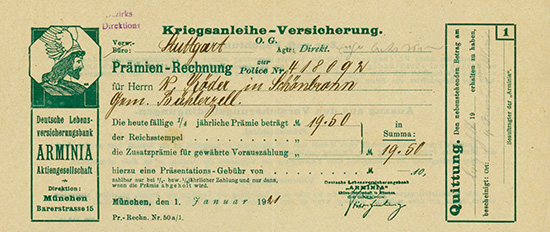 Bezirks
Direktion
Kriegsanleihe-Versicherung.
O. G.
Verw.-
Büro: Stuttgart Agtr: Direkt.
Prämien-Rechnung zur Police Nr. 418092
für Herrn W. Röder in Schönbronn
Gem. Bühlerzell.
Die heute fällige 1/1 jährliche Prämie beträgt ℳ 19.50
der Reichsstempel " in Summa:
die Zusatzprämie für gewährte Vorauszahlung " ℳ 19.50
hierzu eine Präsentations-Gebühr von ℳ 10,
zahlbar nur bei 1/2- bzw. 1/4 jährlicher Zahlung und nur dann,
wenn die Prämie abgeholt wird.
Deutsche Lebensversicherungsbank
"ARMINIA"
Aktiengesellschaft in München
München, den 1. Januar 1921
Pr.- Rechn. Nr. 50 a/1.
Deutsche Lebens-
versicherungsbank
ARMINIA
Aktiengesellschaft
Direktion:
München
Barerstrasse 15
1
Quittung. Den nebenstehenden Betrag am
19 erhalten zu haben,
bescheinigt: Ort:
Beauftragter der „Arminia".